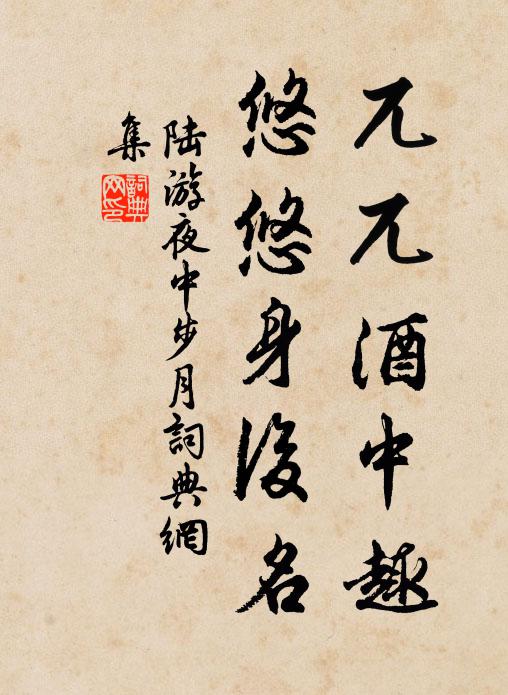 兀兀酒中趣
悠悠身後名
陆游夜中步月詞典網
集
詞典
网印